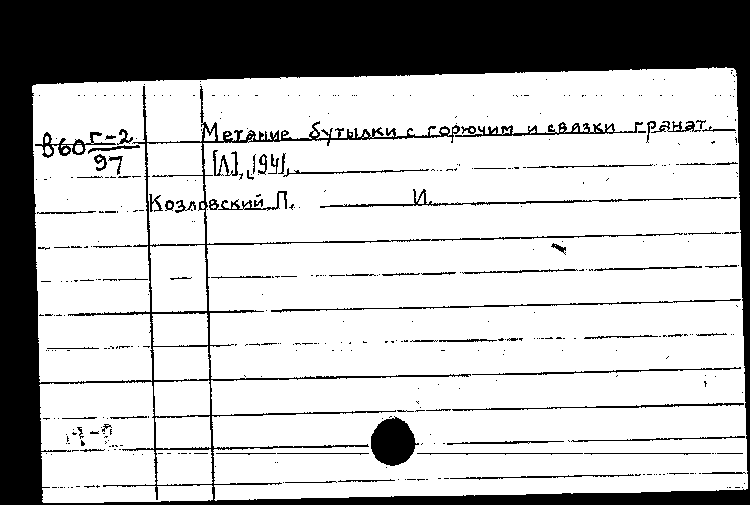 В60 Г-2/97 Метание бутылки с горючим и связки гранат.
[Л.], 1941.
Козловский П. И.